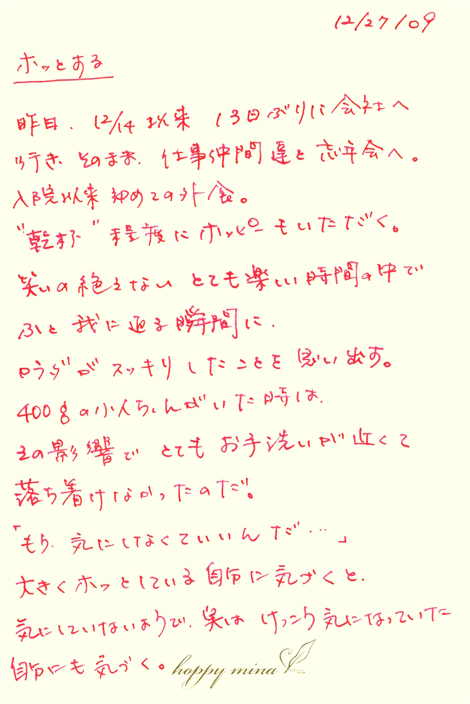 12/27/09
ホッとする
昨日、12/14以来 13日ぶりに会社へ
行き、そのまま、仕事仲間達と忘年会へ。
入院以来初めての外食。
"乾杯"程度にホッピーもいただく。
笑いの絶えない とても楽しい時間の中で
ふと我に返る瞬間に、
カラダがスッキリしたことを思い出す。
400gの小人ちゃんがいた時は、
その影響で とても お手洗いが近くて
落ち着けなかったのだ。
「もう、気にしなくていいんだ…」
大きくホッとしている自分に気づくと、
気にしていないようで、実は けっこう気になっていた
自分にも気づく。
hoppy mina